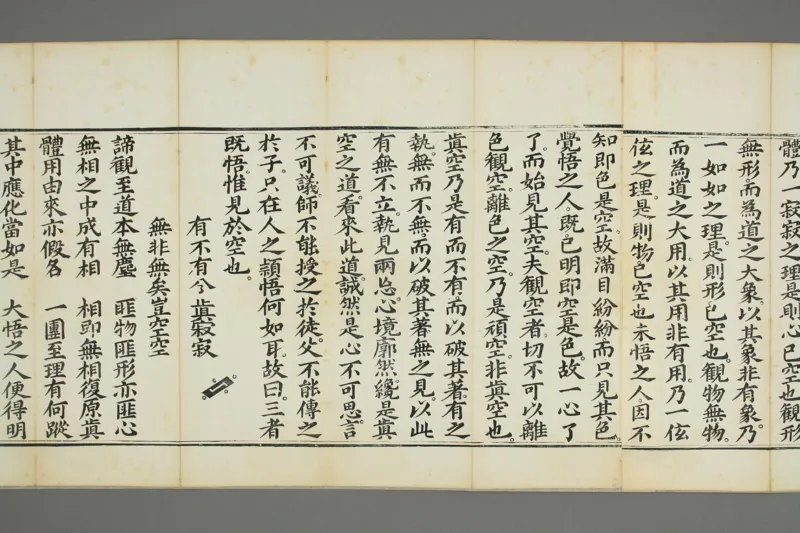 體乃一寂寂之理。是則心已空也。觀形
無形。而為道之大象。以其象非有象。乃
一如如之理。是則形已空也。觀物無物。
而為道之大用。以其用非有用。乃一伭
伭之理。是則物已空也。未悟之人。因不
知即色是空。故滿目紛紛。而只見其色。
覺悟之人。既已明即空是色。故一心了
了。而始見其空。夫觀空者。切不可以離
色觀空。離色之空。乃是頑空。非眞空也。
眞空乃是有而不有。而以破其著有之
執。無而不無。而以破其著無之見。以此
有無不立。執見兩忘。心境廓然。纔是眞
空之道。看來此道。誠然是心不可思。言
不可議。師不能授之於徒。父不能傳之
於子。只在人之頴悟何如耳。故曰。三者
既悟。惟見於空也。
有不有兮眞寂寂
無非無矣豈空空
諦觀至道本無塵 匪物匪形亦匪心
無相之中成有相 相即無相復原眞
體用由來亦假名 一團至理有何蹤
其中應化當如是 大悟之人便得明